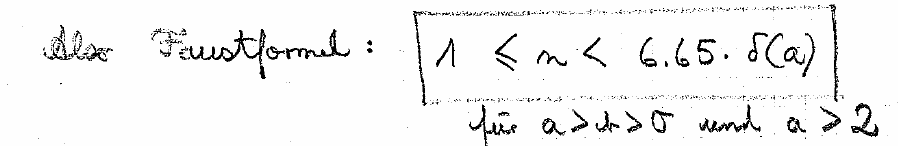 Also Faustformel: 1 ≤ n < 6.65 · δ(a)
für a > b > 0 und a > 2